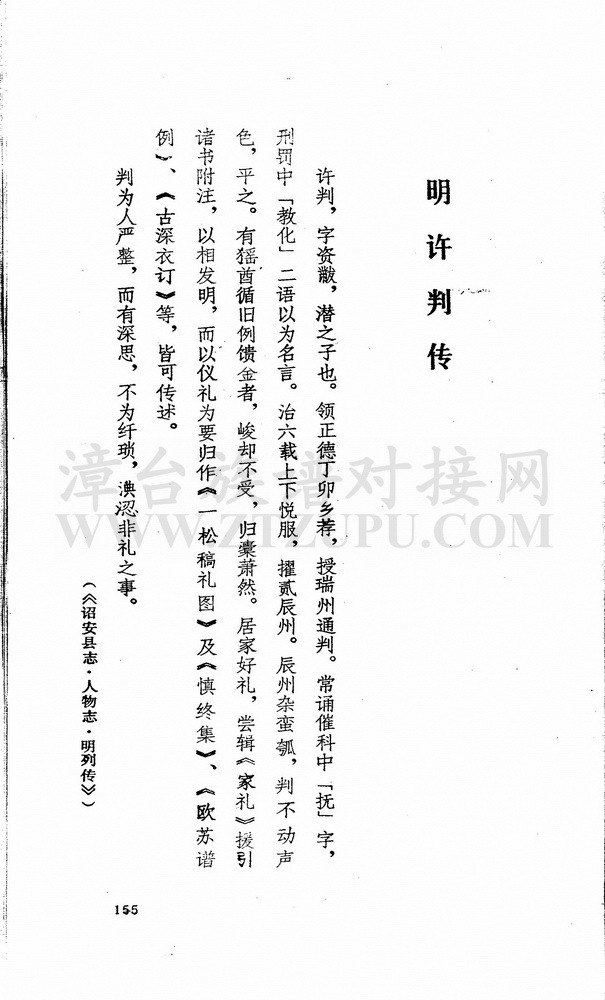 明许判传
许判，字资黻，潜之子也。领正德丁卯乡荐，授瑞州通判。常诵催科中「抚」字，
刑罚中「教化」二语以为名言。治六载上下悦服，擢贰辰州。辰州杂蛮瓠，判不动声
色，平之。有猺酋循旧例馈金者，峻却不受，归囊萧然。居家好礼，尝辑《家礼》援引
诸书附注，以相发明，而以仪礼为要归作《一松稿礼图》及《慎终集》、《欧苏谱
例》、《古深衣订》等，皆可传述。
判为人严整，而有深思，不为纤琐，淟涊非礼之事。
（《诏安县志·人物志·明列传》）
155
漳台族谱对接网
WWW.ZTZUPU.COM